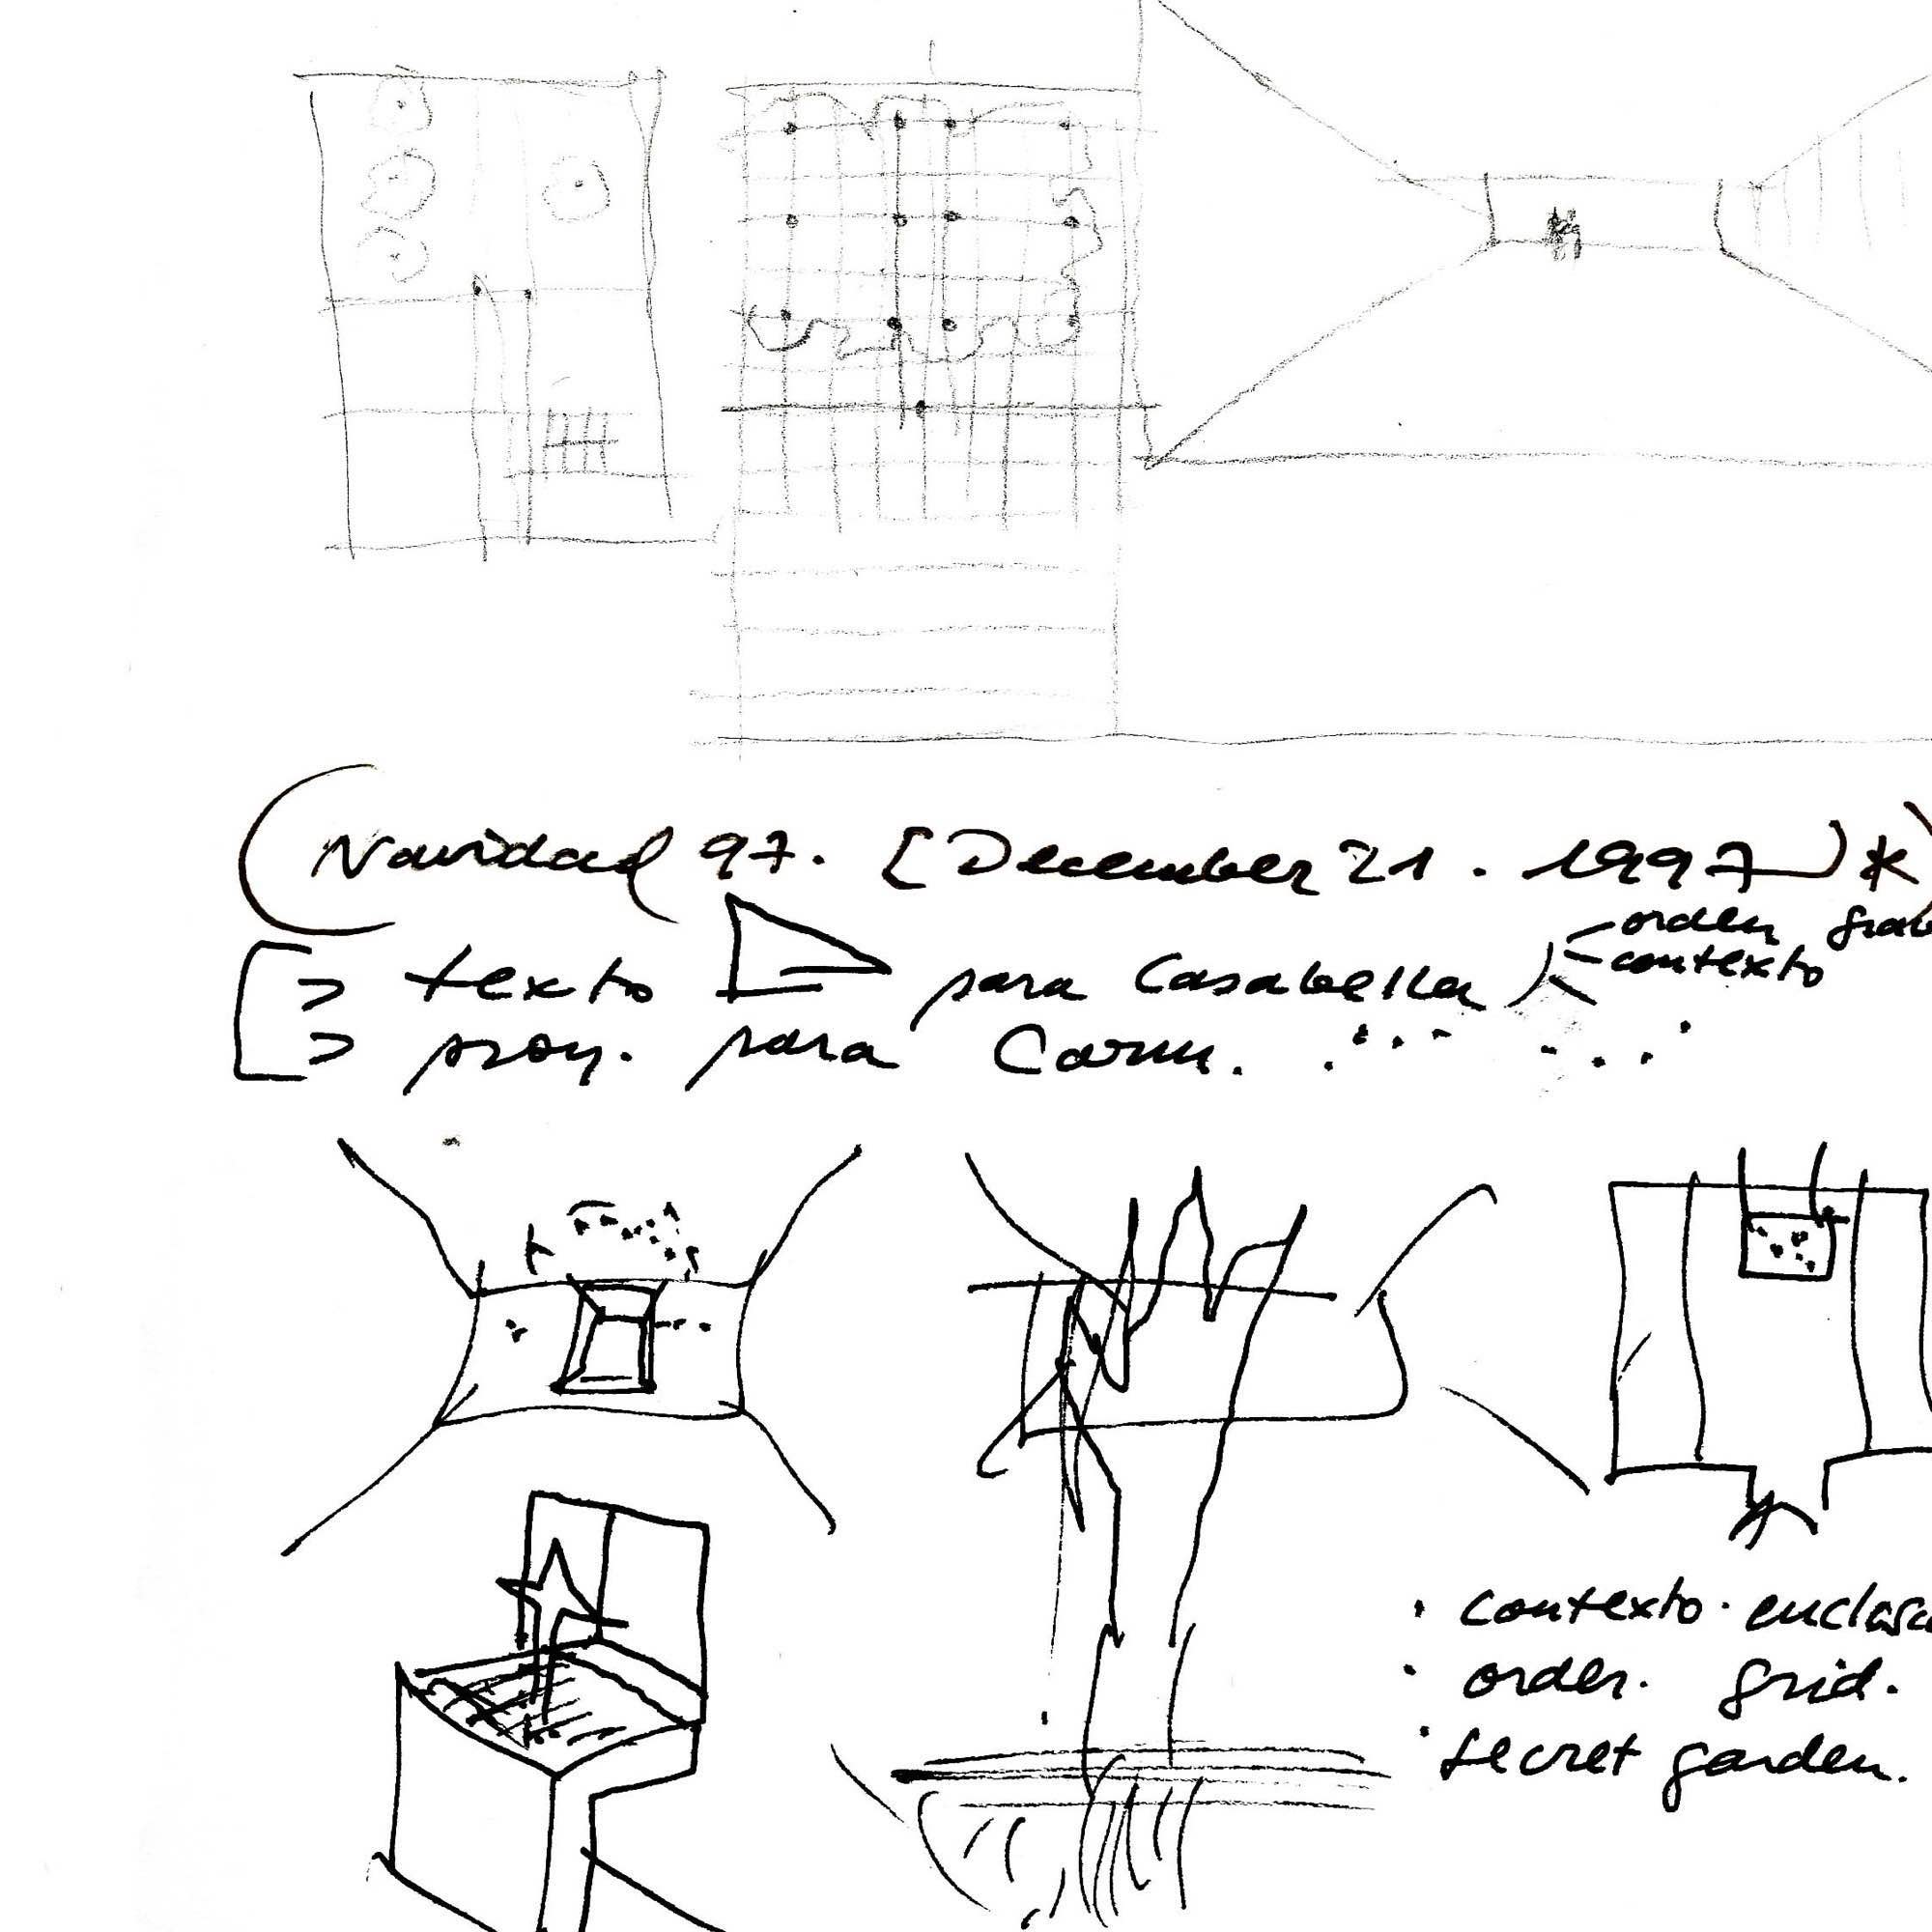 (Navidad 97. [December 21. 1997] *)
> texto para Casabella
orden
contexto
> proy. para
· contexto · 
· order. grid.
· secret garden.